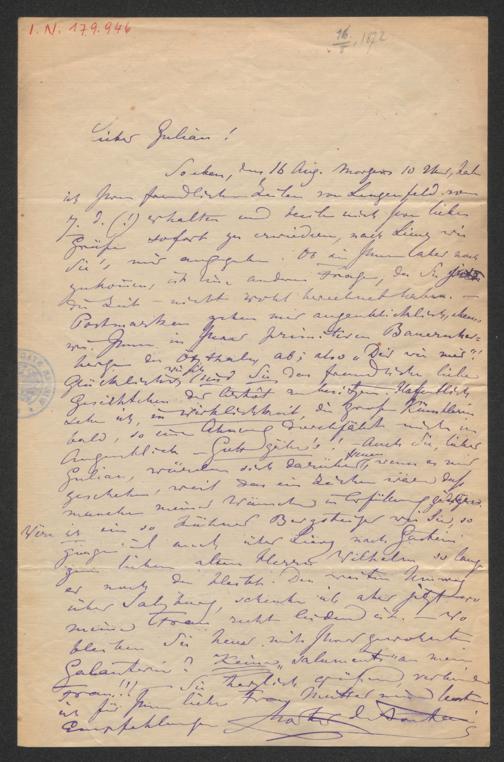 I. N. 179.946
16/8, 1872
Lieber Julian!
Soeben, den 16 Aug. Morgens 10 Uhr, habe
ich Ihre freundlichen Zeilen von Lengenfeld vom
7. d. (!) erhalten und beeile mich Ihre lieben
Grüße sofort zu erwiedern, nach Lienz wie
Sie's mir angegeben. Ob sie Ihnen aber noch
zukommen, ist eine andere Frage, da Sie
die Zeit - nicht wohl berechnet haben. -
Postmarken gehen mir augenblicklich, ebenso
wie Ihnen in Ihrer primitiven Bauern
herberge des Ötzthales ab; also "Dir wie mir"!
Glücklicher, Sie, das freundliche liebe
Gesichtchen der
sehe ich, in Wirklichkeit, die große Künstlerin
bald, so eine Ahnung durchfährt mich im
Augenblick - Gott gäbe's! - Auch Sie, lieber
Julian, würden sich darüber freuen, wenn es nur
geschehen, weil das ein Zeichen wäre daß
mancher meiner Wünsche in Erfüllung
Wäre ich ein so kühner Bergsteiger wie Sie, so
ginge ich auch über Lienz nach Gastein
zum lieben alten Herrn Wilhelm so lange
er noch da bleibt. Den weiten Umweg
über Salzburg, scheue ich aber jetzt wo
meine Frau recht leidend ist. - Wo
bleiben Sie heuer mit Ihrer gewohnten
Galanterie? Keine "Salamenti" an meine
Frau!!! - Sie herzlich grüßend verbinde
ich für Ihre liebe Frau Mutter meine besten
Empfehlungen